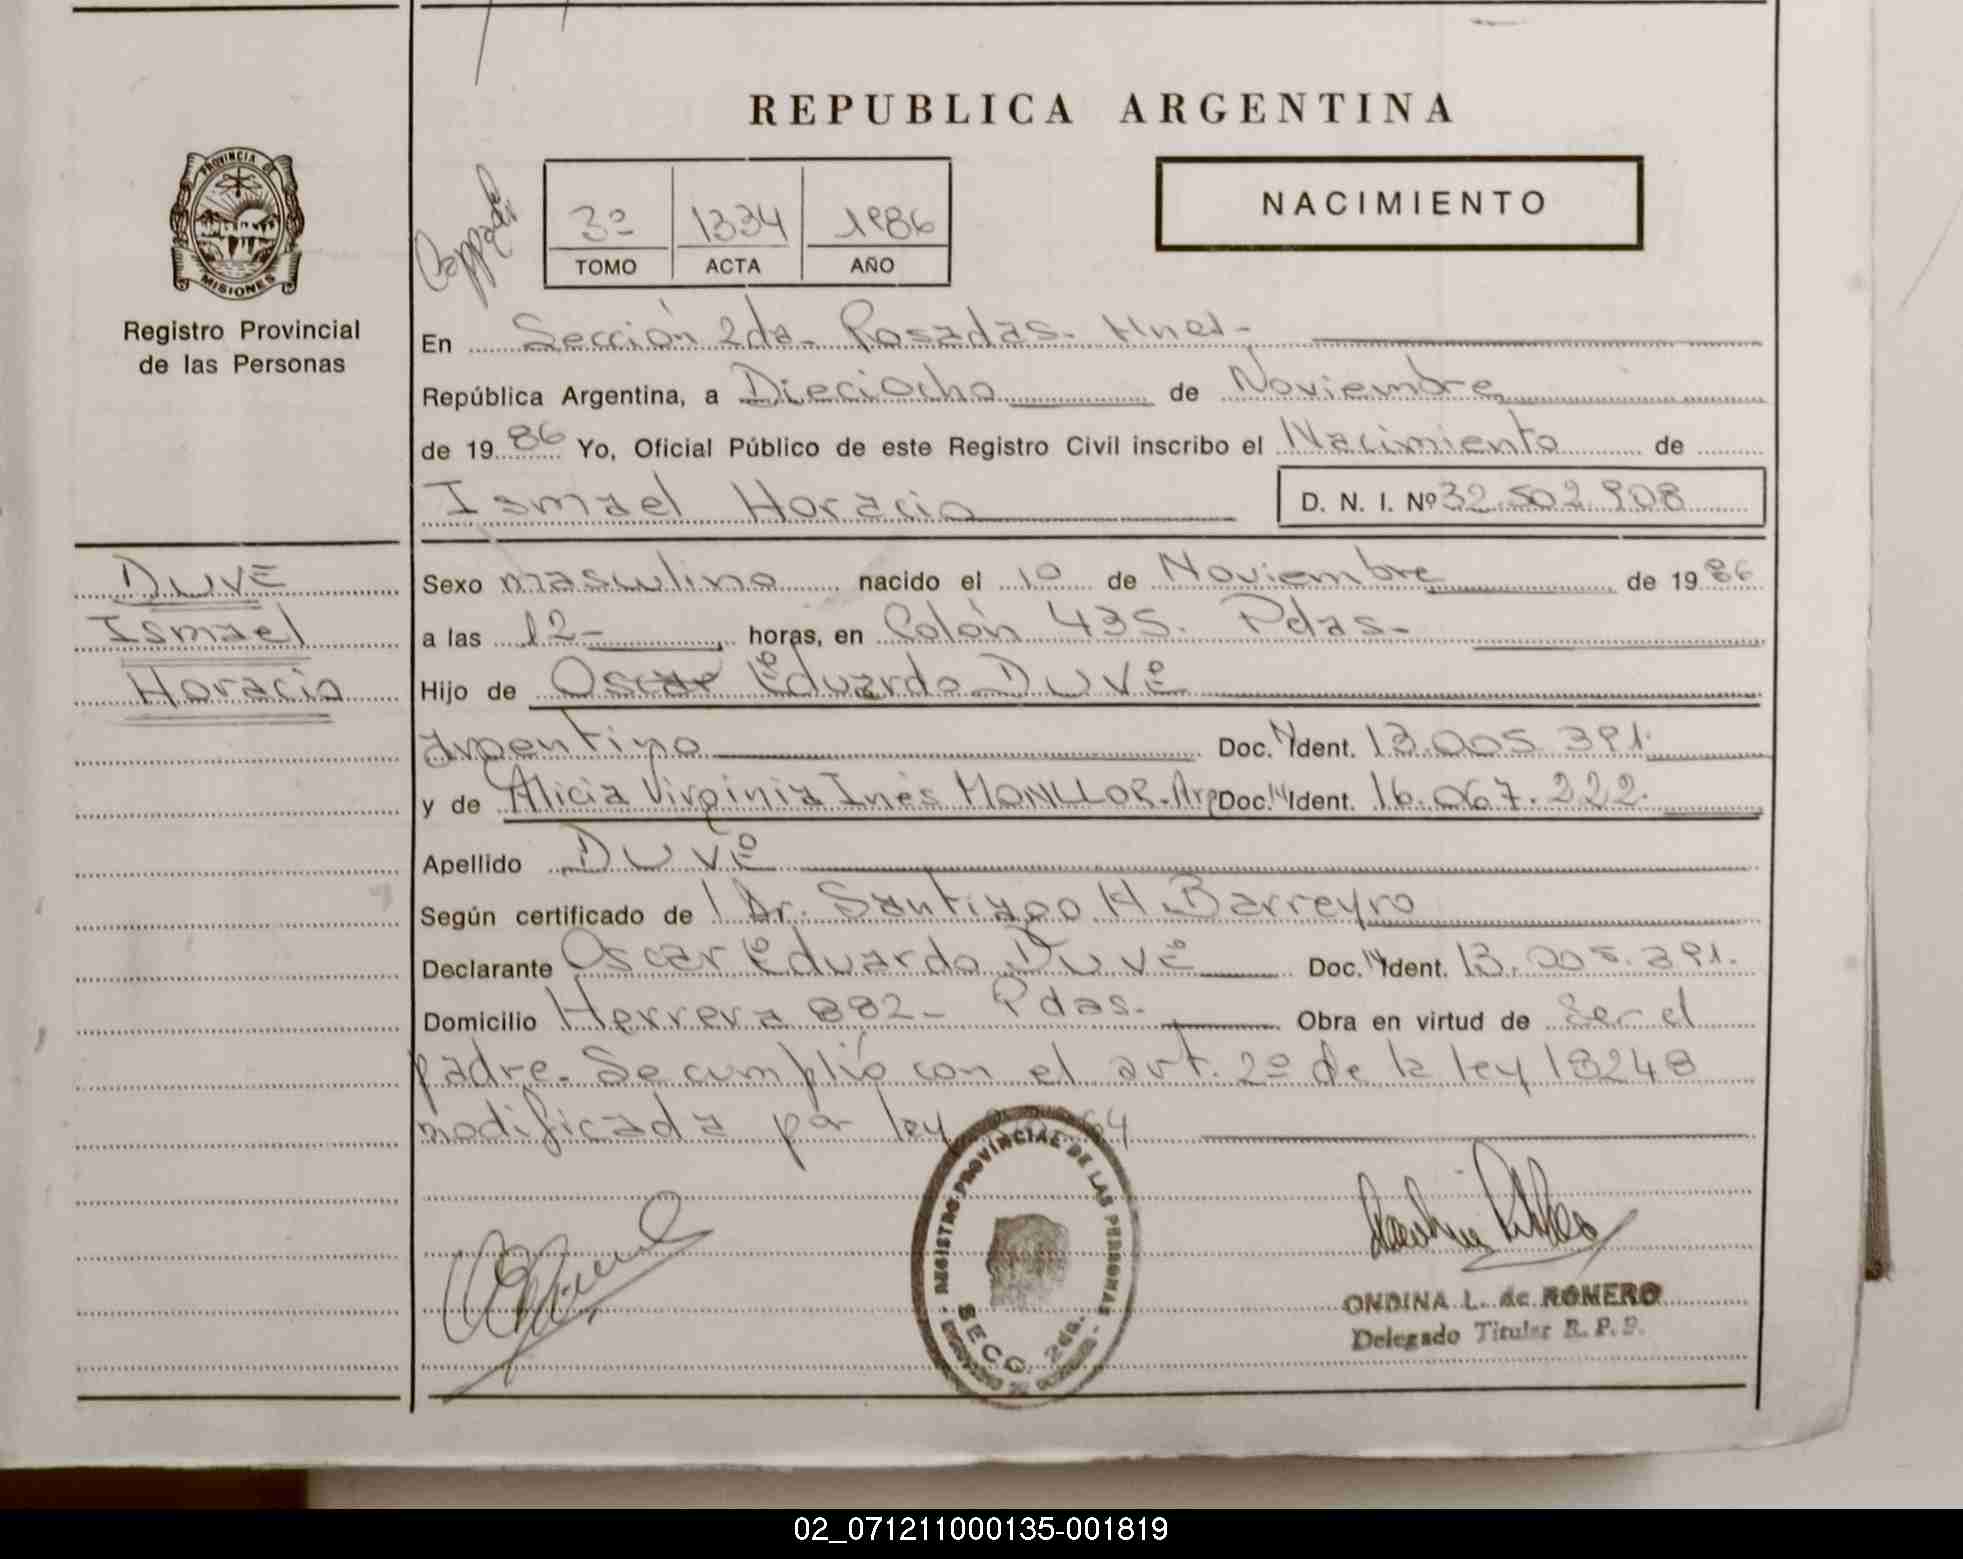 REPUBLICA ARGENTINA
NACIMIENTO
PROVINCIA DE
MISIONES
Registro Provincial
de las Personas
3º 1334 1986
TOMO ACTA AÑO
En Sección 2da- Posadas- Mnes-
República Argentina, a Dieciocho de Noviembre
de 1986 Yo, Oficial Público de este Registro Civil inscribo el Nacimiento de
Ismael Horacio D. N. I. Nº 32.502.908
DUVE
Ismael
Horacio
Sexo masculino nacido el 10 de Noviembre de 1986
a las 12- horas, en Colón 435. Pdas-
Hijo de Oscar Eduardo DUVE
argentino Doc. Ident. 13.005.391.
y de Alicia Virginia Inés MONLLOR-Arg Doc. Ident. 16.067.222.
Apellido DUVE
Según certificado de l Dr. Santiago H. Barreyro
Declarante Oscar Eduardo DUVE Doc. Ident. 13.005.391.
Domicilio Herrera 882- Pdas. Obra en virtud de ser el
padre. Se cumplió con el art. 2º de la ley 18248
modificada por ley
REGISTRO PROVINCIAL DE LAS PERSONAS
SECC. 2da.
ONDINA L. de ROMERO
Delegado Titular R. P. P.
02_071211000135-001819